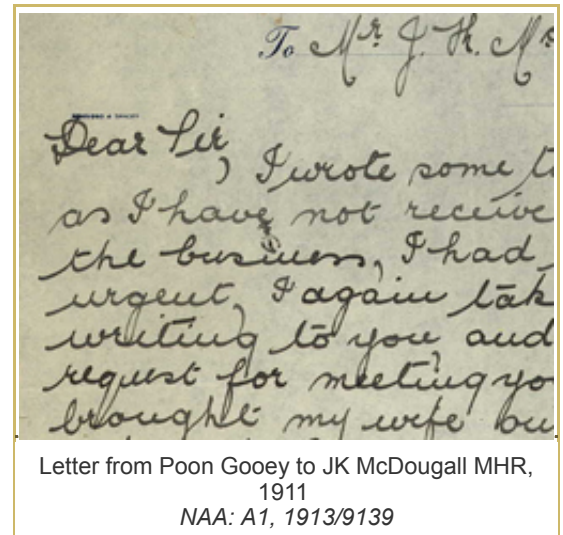 To Mr. J. K. Mc
Dear Sir
, I wrote some t
as I have not receive
the business, I had
urgent, I again tak
writing to you, and
request for meeting yo
brought my wife ou
Letter from Poon Gooey to JK McDougall MHR,
1911
NAA: A1, 1913/9139